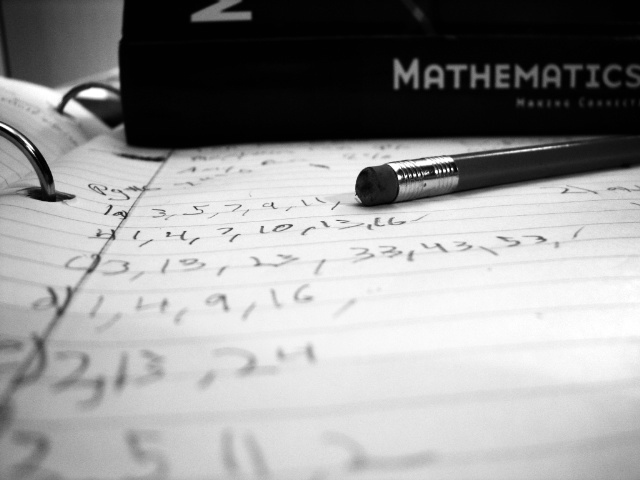 MATHEMATICS
MAKING CONNECT
1a) 3, 5, 7, 9, 11,
b) 1, 4, 7, 10, 13, 16
c) 3, 13, 23, 33, 43, 53,
d) 1, 4, 9, 16,
2, 13, 24
5 11 2